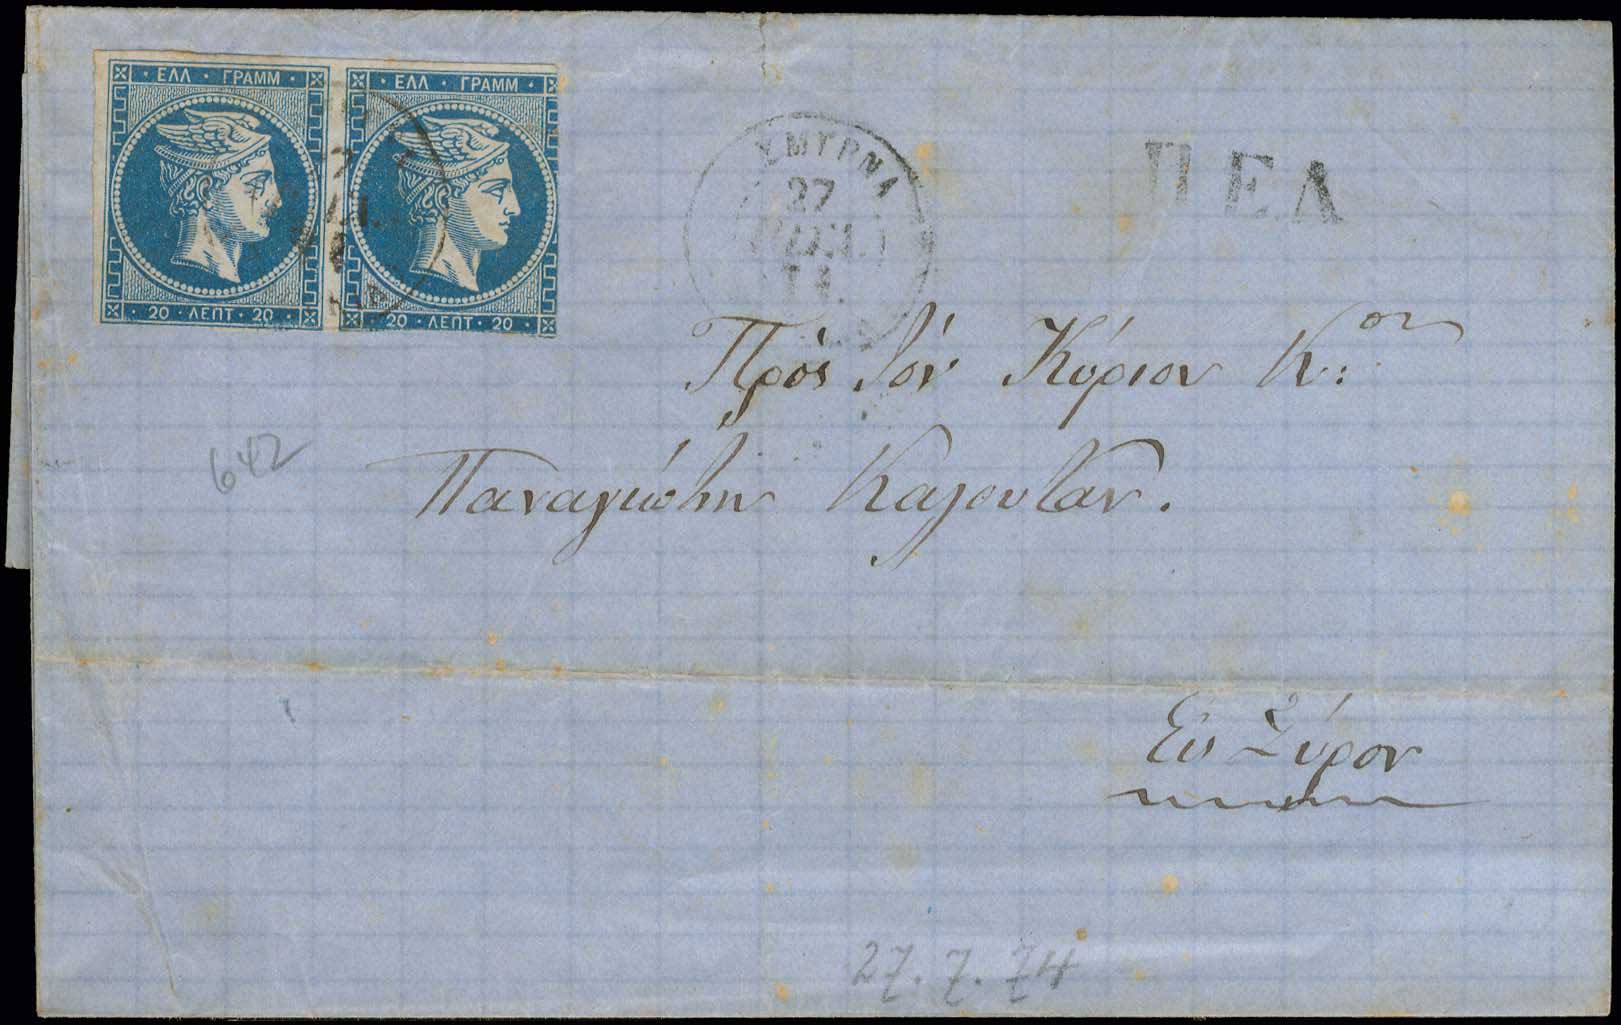 ΕΛΛ · ΓΡΑΜΜ
ΕΛΛ · ΓΡΑΜΜ
20 · ΛΕΠΤ · 20
20 · ΛΕΠΤ · 20
ΣΜΥΡΝΑ
27
ΙΟΥΛ.
74.
ΠΕΔ
Πρὸς τὸν Κύριον Κ:ον
Παναγιώτην Καλουτᾶν.
Εἰς Σύρον
642
27.7.74